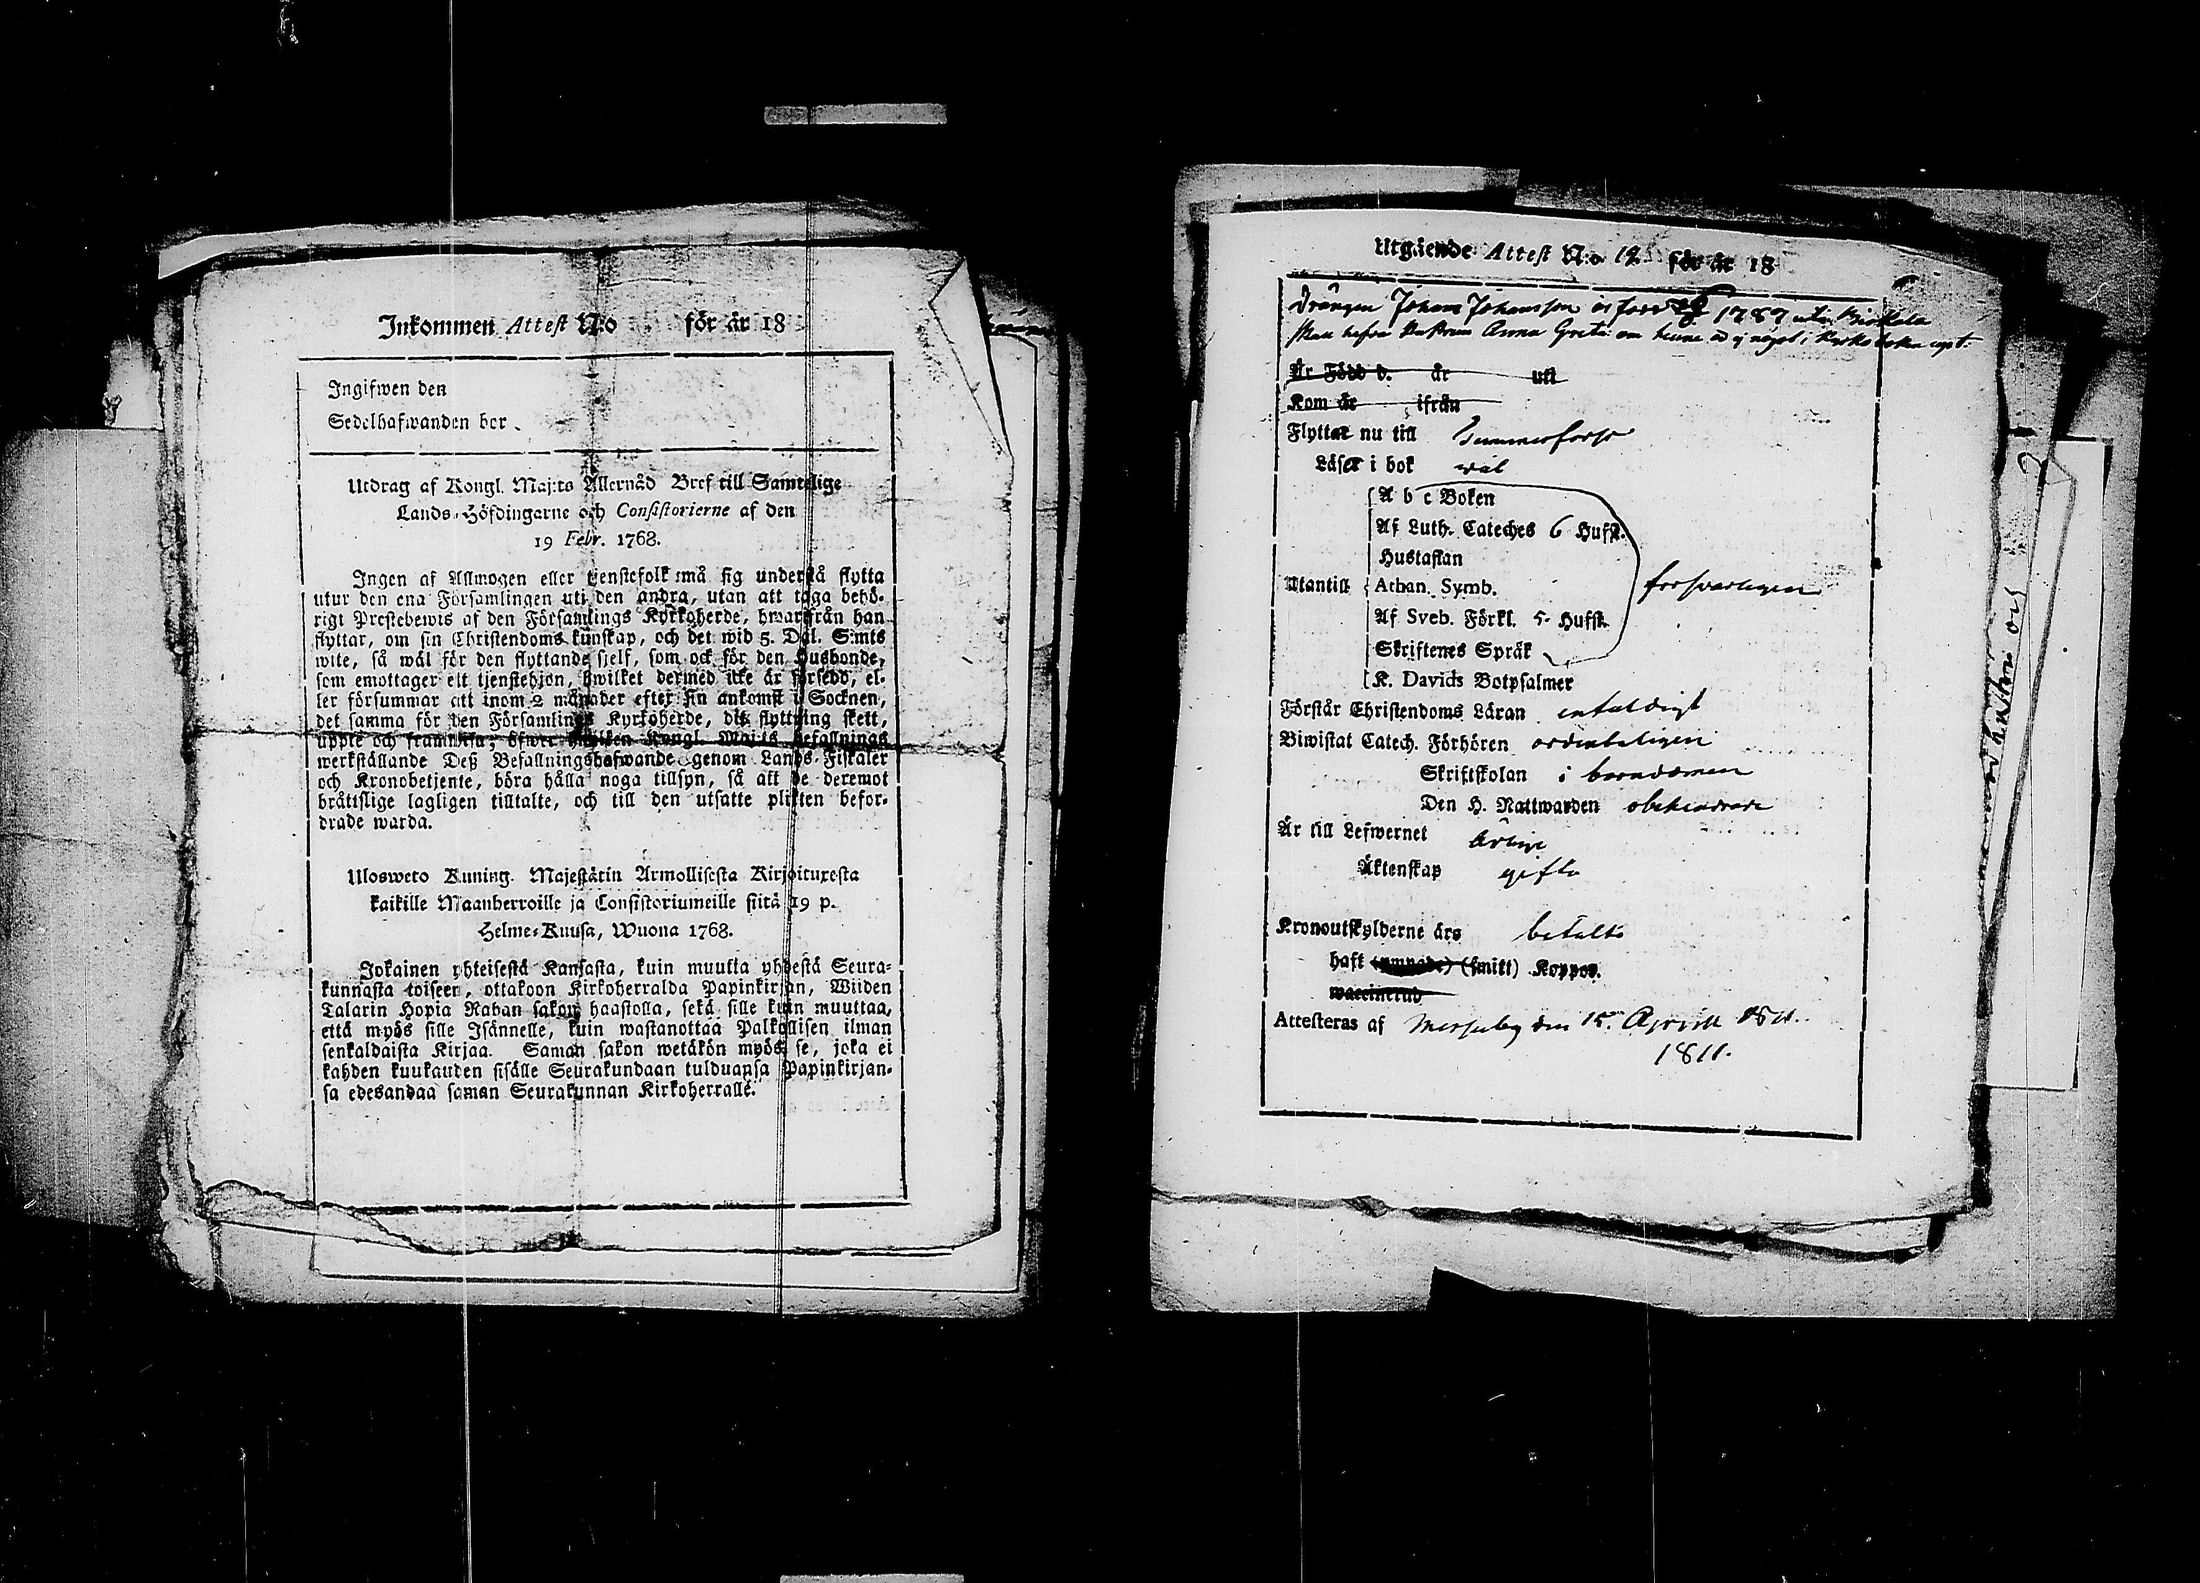 Inkommen Attest N:o för år 18
Ingifwen den
Sedelhafwanden ber
Utdrag af Kongl. Maj:ts Allernåd Bref till Samtelige
Lands-Höfdingarne och Consistorierne af den
19 Febr. 1768.
Ingen af Allmogen eller tjenstefolk må sig understå flytta
utur den ena Församlingen uti den andra, utan att taga behö-
rigt Prestebewis af den Församlings Kyrkoherde, hwarifrån han
flyttar, om sin Christendoms kunskap, och det wid 5. Dal. S:mts
wite, så wäl för den flyttande sjelf, som ock för den Husbonde,
som emottager ett tjenstehjon, hwilket dermed icke är försedd, el-
ler försummar att inom 2 månader efter sin ankomst i Socknen,
det samma för den Församlings Kyrkoherde, dit flyttning skett,
uppte och framwisa; öfwer hwilken Kongl. Maj:ts befallnings
werkställande Deß Befallningshafwande genom Lands-Fiskaler
och Kronobetjente, böra hålla noga tillsyn, så att de deremot
bråtislige lagligen tilltalte, och till den utsatte plikten befor-
drade warda.
Ulosweto Kuning. Majestätin Armollisesta Kirjoituxesta
kaikille Maanherroille ja Consistoriumeille siitä 19 p.
Helme-Kuusa, Wuona 1768.
Jokainen yhteisestä Kansasta, kuin muutta yhdestä Seura-
kunnasta toiseen, ottakoon Kirkoherralda Papinkirjan, Wiiden
Talarin Hopia Rahan sakon haastolla, sekä sille kuin muuttaa,
että myös sille Isännelle, kuin wastanottaa Palkollisen ilman
senkaldaista Kirjaa. Saman sakon wetäkön myös se, joka ei
kahden kuukauden sisälle Seurakundaan tulduansa Papinkirjan-
sa edesandaa saman Seurakunnan Kirkoherralle.
Utgående Attest N:o 12 för år 18
Drängen Johan Johansson är född 1787 uti Birkala
skall hafva hustrun Anna Greta om henne är ej något i Kyrko boken upt.
Är Född d. år uti
Kom år ifrån
Flyttar nu till Tammerfors
Läser i bok wäl
A b c Boken
Af Luth. Cateches 6 Hufst.
Hustaflan
Utantill Athan. Symb. forsvarligen
Af Sveb. Förkl. 5- Hufst.
Skriftenes Språk
K. Davids Botpsalmer
Förstår Christendoms Läran enfaldigt
Biwistat Catech. Förhören ordenteligen
Skriftskolan i barndomen
Den H. Nattwarden obehindrad
Är till Lefwernet ärlig
Äktenskap gifta
Kronoutskylderne års betalte
haft (ympade) (smitt) Koppor.
waccinerad
Attesteras af den 15 April
1811.